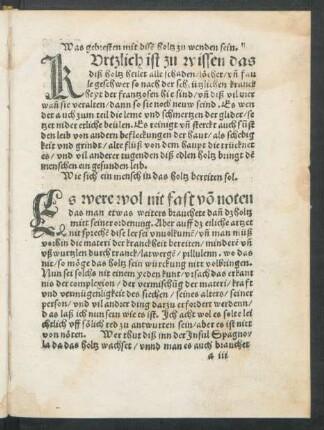 Was gebresten mit disē holtz zu wenden sein.
KUrtzlich ist zu wissen das
diß holtz heilet alle schaden/löcher/vñ fau
le geschwer so nach der schützlichen kranck
heyt der frantzosen die sind/vñ diß vil mer
wañ sie veralten/dann so sie noch neuw seind. Es wen
det auch zum teil die leme vnd schmertzen der glider/so
tzet nider etliche beülen. Es reinigt vñ sterckt auch süst
den leib von andern befleckungen der haut/als schebig
keit vnd grindt/alte flüß von dem haupt die trücknet
es/vnd vil anderer tugenden diß edlen holtz bringt dē
menschen ein gesunden leib.
Wie sich ein mensch in das holtz bereiten sol.
ES were wol nit fast vō noten
das man etwas weiters brauchete dañ dz holtz
mitt seiner ordenung. Aber auff dz etliche artzet
nit sprechē diser leer sei vnuolkumē/vñ man muß
vorhin die materi der kranckheit bereiten/mindern vñ
vß wurtzlen durch tranck/latwergē/pillulenn. wo das
nit/so möge das holtz sein würckung nitt volbringen.
Nun sei solchs nit einem yeden kunt/vrsach das erkant
nis der complexion/der vermischüg der materi/krafft
vnd vermügenligkeit des siechen/seines alters/seiner
person/vnd vil ander ding darzu erfordert werdenn/
das laß ich nun sein wie es ist. Ich acht wol es solte lei
chtlich vff sölich red zu antwurten sein/aber es ist nitt
von nöten. Wer thut diß inn der Insul Spagno
la da das holtz wachset/vnnd man es auch brauchet
a iii